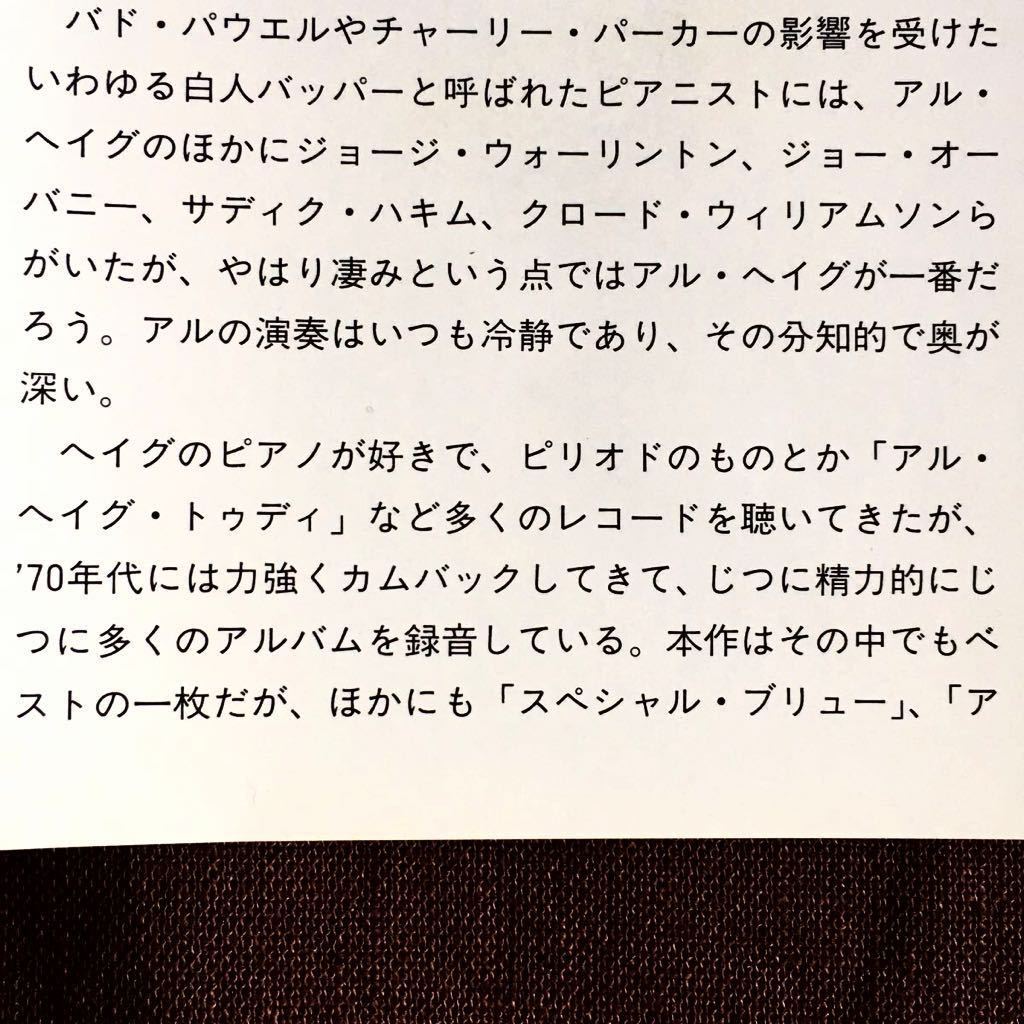 バド・パウエルやチャーリー・パーカーの影響を受けた
いわゆる白人バッパーと呼ばれたピアニストには、アル・
ヘイグのほかにジョージ・ウォーリントン、ジョー・オー
バニー、サディク・ハキム、クロード・ウィリアムソンら
がいたが、やはり凄みという点ではアル・ヘイグが一番だ
ろう。アルの演奏はいつも冷静であり、その分知的で奥が
深い。
ヘイグのピアノが好きで、ピリオドのものとか「アル・
ヘイグ・トゥディ」など多くのレコードを聴いてきたが、
’70年代には力強くカムバックしてきて、じつに精力的にじ
つに多くのアルバムを録音している。本作はその中でもベ
ストの一枚だが、ほかにも「スペシャル・ブリュー」、「ア